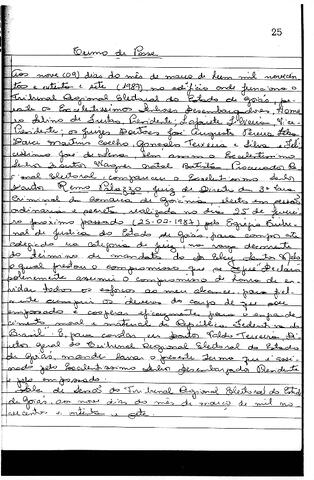 25
Termo de Posse
Aos nove (09) dias do mês de março de hum mil novecen
tos e oitenta e sete (1987) no edifício onde funciona o
Tribunal Regional Eleitoral do Estado de Goiás, pe-
rante os Excelentíssimos Senhores Desembargadores
Presidente; Vice
Presidente; os Juízes Doutores José Augusto Pereira
Darci Martins Coelho, Gonçalo Teixeira e Silva e
bem assim o Excelentíssimo
Senhor Doutor Wagner Natal Batista, Procurador Re
gional Eleitoral, compareceu o Excelentíssimo Senhor
Doutor Remo Palazzo, Juiz de Direito da 3ª Vara
Criminal da Comarca de Goiânia, eleito em sessão
ordinária e secreta, realizada no dia 25 de feverei
ro próximo passado (25-02-1987) pelo Egrégio Tribu
nal de Justiça do Estado de Goiás para compor este
colegiado na categoria de juiz, na vaga decorrente
do término do mandato do
o qual prestou o compromisso que se segue: Declaro
assumir o compromisso de honra de en
vidar todos os esforços ao meu alcance, para fiel
mente cumprir os deveres do cargo de que sou
empossado e cooperar eficazmente para o engrande
cimento moral e material da República Federativa do
Brasil. E, para constar, eu, Teixeira, Di
retor geral do Tribunal Regional Eleitoral do Estado
de Goiás, mandei lavrar o presente termo que é assi
nado pelo Excelentíssimo Senhor Desembargador Presidente
e pelo empossado.
Sala de Sessões do Tribunal Regional Eleitoral do Estado
de Goiás, aos nove dias do mês de março de mil no
vecentos e oitenta e sete